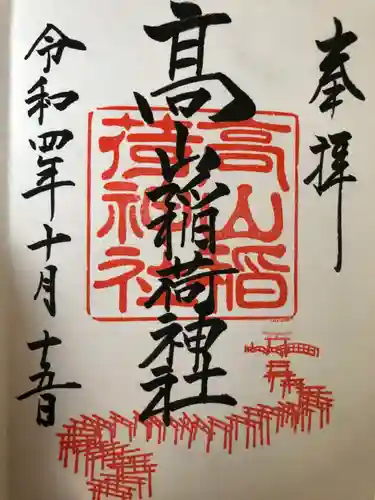 奉拝
髙山稲荷神社
高山稲
荷神社
令和四年十月十五日